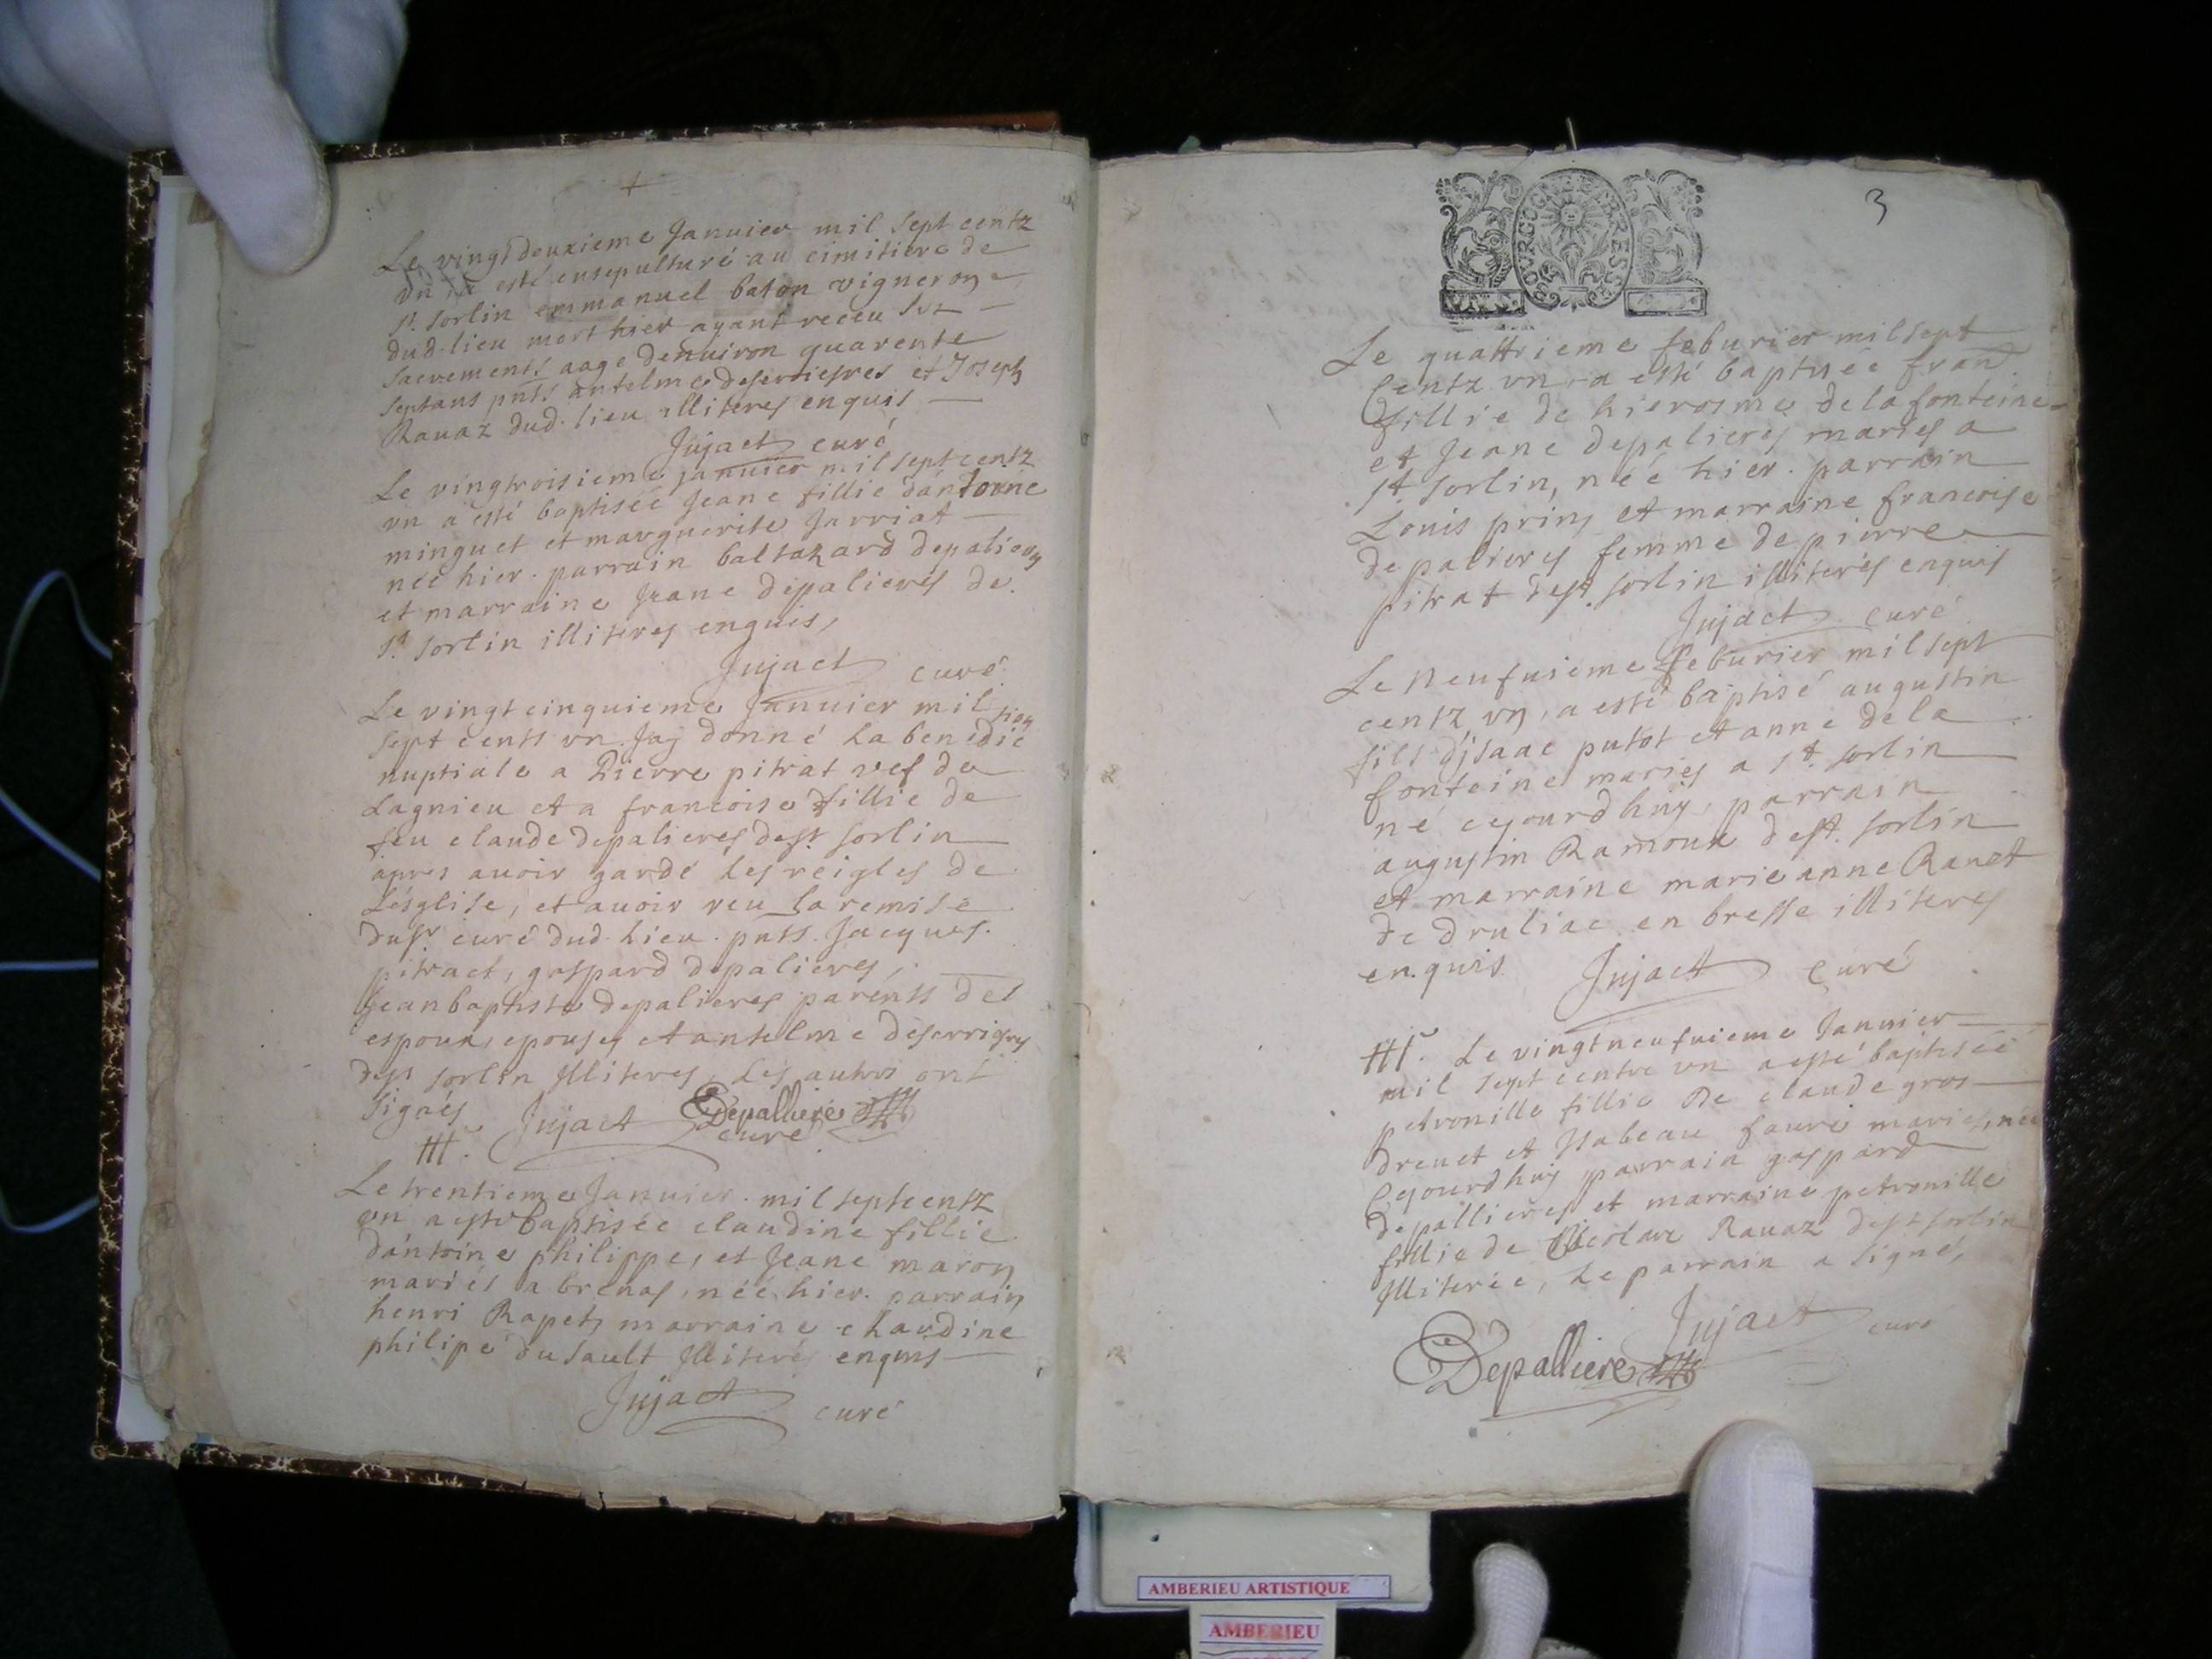 Le vingtdeuxieme Januier mil sept centz
vn a esté ensepulturé au cimitiere de
st. sorlin emmanuel baton vigneron
dud. lieu mort hier ayant receu ses
sacrements aagé denuiron quarente
septans pnts antelme deserriesres et Joseph
Rauaz dud. lieu illiteres enquis
Jujact curé
Le vingtroisieme januier mil sept centz
vn a esté baptisée Jeane fillie dantoine
minguet et marguerite Jarriat
née hier. parrain baltazard depalieres
et marraine Jeane depalieres de.
st. sorlin illiteres enquis,
Jujact curé
Le vingt cinquieme Januier mil
sept cents vn. Jaj donné la benedic
tion
nuptiale a Pierre pitrat vef de
Lagnieu et a francoise fillie de
feu claude depalieres de st sorlin
apres auoir gardé les reigles de
Lésglise, et auoir veu la remise
du sr. curé dud. lieu. pnts. Jacques.
pitract, gaspard depalieres,
Jeanbaptiste depalieres parents des
espoux, epouses et antelme deserrigres
de st sorlin Illiteres, Les autres ont
signés Jujact Depalliere
curé
Le trentieme Januier. mil sept centz
vn a esté baptisée claudine fillie
dántoine philippe, et Jeane maron
mariés a brenas, née hier. parrain
henri Rapet, marraine claudine
philipe du sault Illiterés enquis
Jujact curé
3
BOURGOGNE BRESSE
Le quattrieme feburier mil sept
Centz vn, a esté baptisée fran.
fillie de hierosme de la fonteine
et Jeane depalieres mariés a
st. sorlin, née hier. parrain
Louis prin, et marraine francoise
depalieres femme de pierre
pitrat de st. sorlin illiterés enquis
Jujact curé
Le neufuieme feburier mil sept
centz vn, a esté baptisé augustin
fils djsaac putot et anne de la
fonteine mariés a st. sorlin
né cejourdhuy, parrain
augustin Ramoux de st. sorlin
et marraine marie anne Rauet
de druliac en bresse illiteres
enquis. Jujact curé
Le vingtneufuieme Januier
mil sept centz vn a esté baptisée
petronille fillie De claude gros
drenet et Isabeau faure mariés, née
Cejourdhuy parrain gaspard
depallieres et marraine petronille
fillie de Nicolas Rauaz de st sorlin
Illiterée, Le parrain a signé,
Jujact curé
Depalliere
AMBERIEU ARTISTIQUE
AMBERIEU